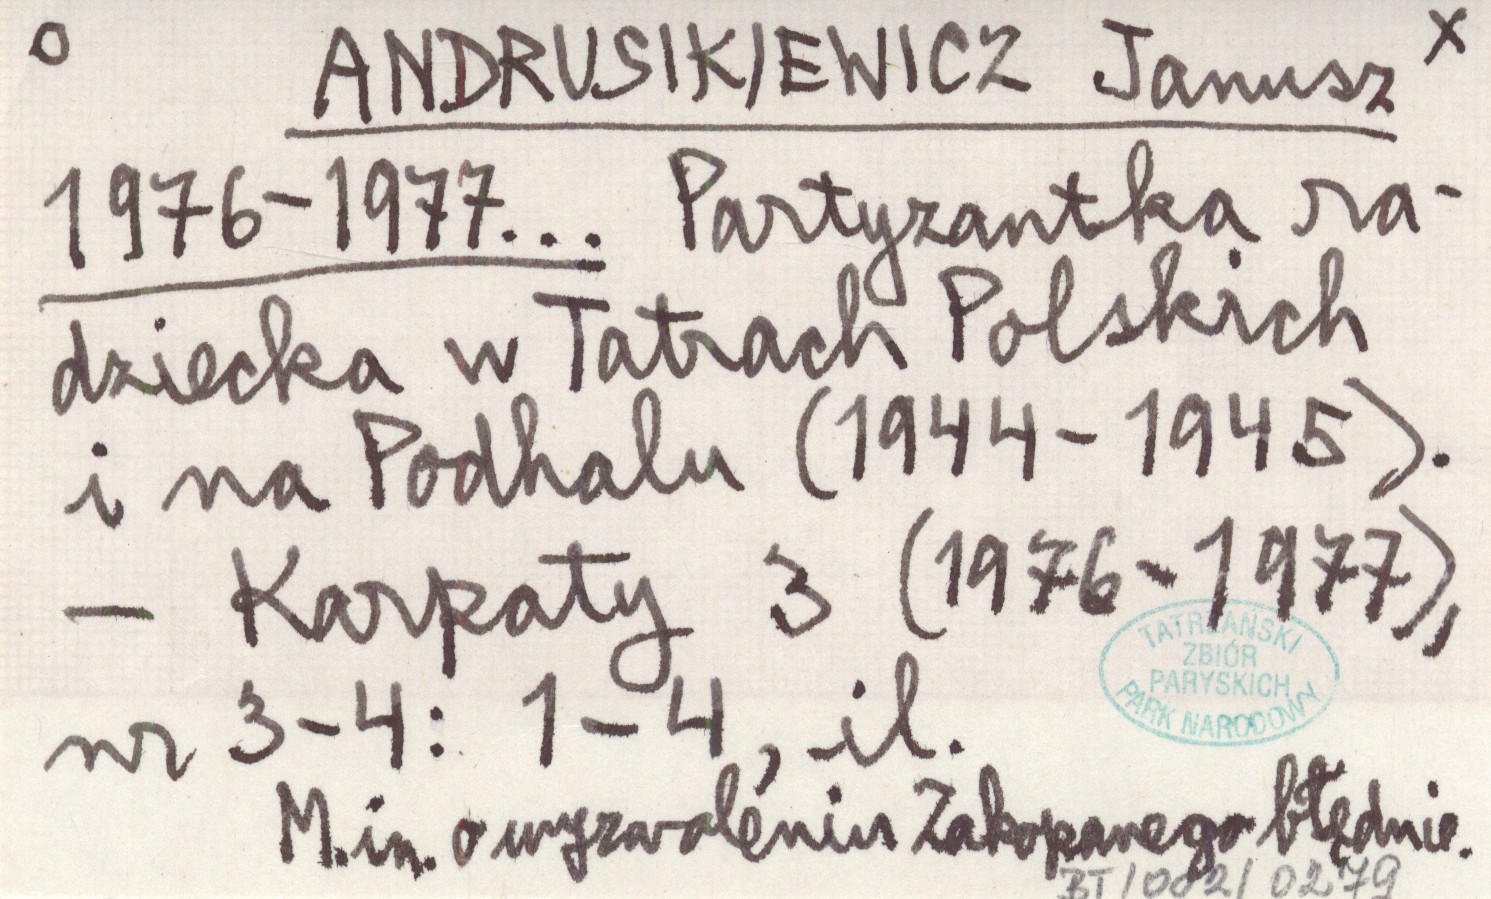 o ANDRUSIKIEWICZ Janusz x
1976-1977... Partyzantka ra-
dziecka w Tatrach Polskich
i na Podhalu (1944-1945).
— Karpaty 3 (1976-1977),
nr 3-4: 1-4, il.
TATRZAŃSKI
ZBIÓR
PARYSKICH
PARK NARODOWY
M.in. o wyzwoleniu Zakopanego błędnie.
BT/002/0279